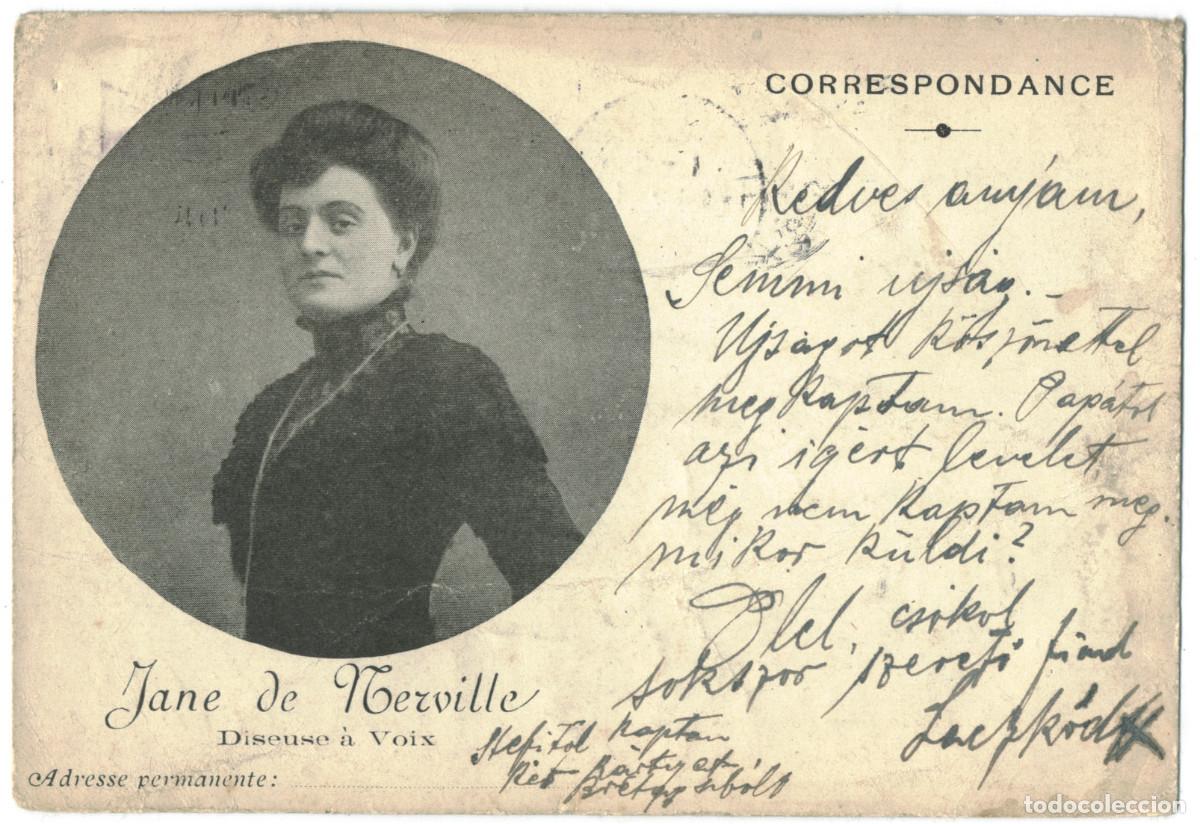 CORRESPONDANCE
Kedves anyám,
Semmi ujság.-
Ujságot köszönettel
megkaptam. Papától
azi igért levelet
még nem kaptam meg.
mikor küldi?
Ölel, csókol
sokszor szerető fiad
Laczkód
Jane de Nerville
Diseuse à Voix
Stefitől kaptam
két kártyát
Adresse permanente:
todocoleccion